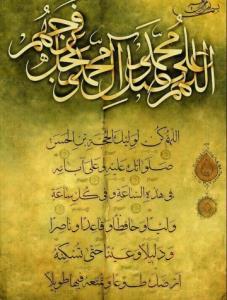 اللهم صل علی محمد و آل محمد و عجل فرجهم
اللهم کن لولیک الحجة بن الحسن
صلواتک علیه و علی آبائه
فی هذه الساعة و فی کل ساعة
ولیا و حافظا و قائدا و ناصرا
و دلیلا و عینا حتی تسکنه
ارضک طوعا و تمتعه فیها طویلا